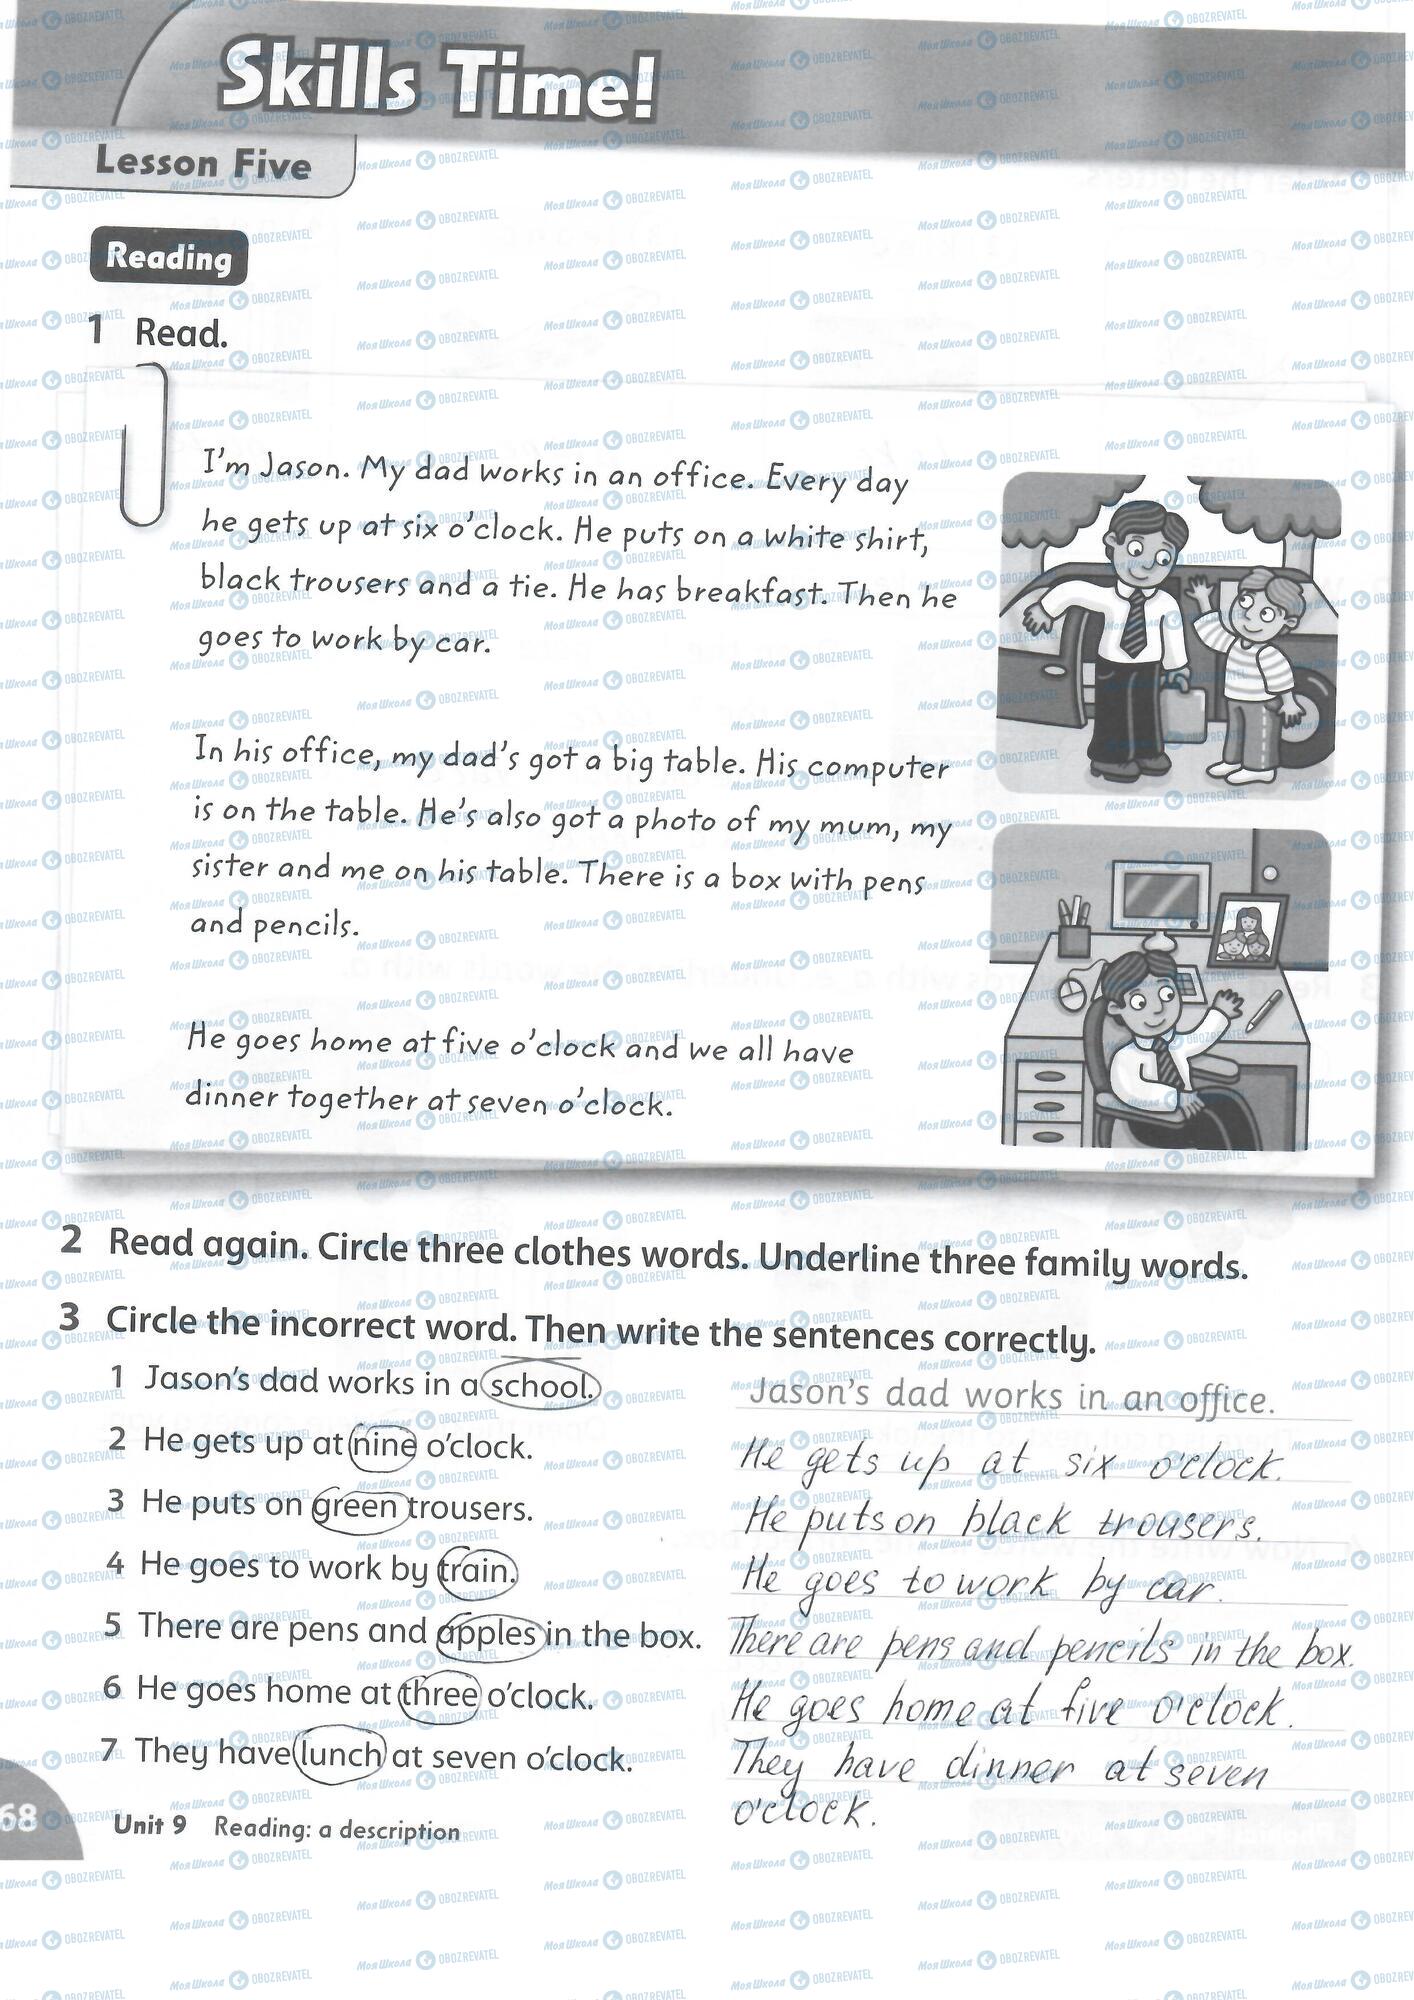 Skills Time!
Lesson Five
Reading
1 Read.
I'm Jason. My dad works in an office. Every day
he gets up at six o'clock. He puts on a white shirt,
black trousers and a tie. He has breakfast. Then he
goes to work by car.
In his office, my dad's got a big table. His computer
is on the table. He's also got a photo of my mum, my
sister and me on his table. There is a box with pens
and pencils.
He goes home at five o'clock and we all have
dinner together at seven o'clock.
2 Read again. Circle three clothes words. Underline three family words.
3 Circle the incorrect word. Then write the sentences correctly.
1 Jason's dad works in a school. Jason's dad works in an office.
2 He gets up at nine o'clock. He gets up at six o'clock.
3 He puts on green trousers. He puts on black trousers.
4 He goes to work by train. He goes to work by car.
5 There are pens and apples in the box. There are pens and pencils in the box.
6 He goes home at three o'clock. He goes home at five o'clock.
7 They have lunch at seven o'clock. They have dinner at seven
o'clock.
68 Unit 9 Reading: a description
МояШкола OBOZREVATEL